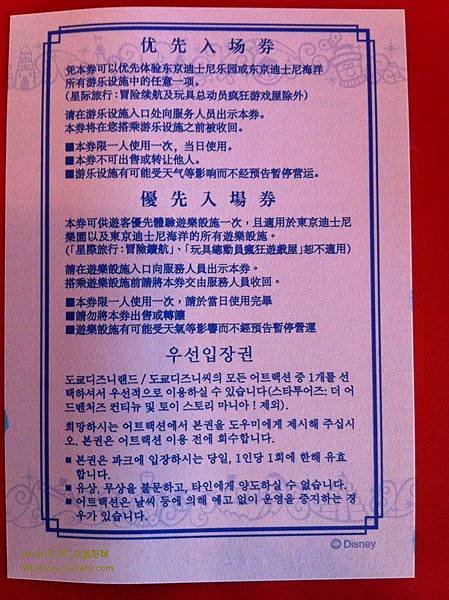 优先入场券
凭本券可以优先体验东京迪士尼乐园或东京迪士尼海洋
所有游乐设施中的任意一项。
(星际旅行：冒险续航及玩具总动员疯狂游戏屋除外)
请在游乐设施入口处向服务人员出示本券。
本券将在您搭乘游乐设施之前被收回。
■本券限一人使用一次，当日使用。
■本券不可出售或转让他人。
■游乐设施有可能受天气等影响而不经预告暂停营运。
優先入場券
本券可供遊客優先體驗遊樂設施一次，且適用於東京迪士尼
樂園以及東京迪士尼海洋的所有遊樂設施。
(「星際旅行：冒險續航」、「玩具總動員瘋狂遊戲屋」恕不適用)
請在遊樂設施入口向服務人員出示本券。
搭乘遊樂設施前請將本券交由服務人員收回。
■本券限一人使用一次，請於當日使用完畢
■請勿將本券出售或轉讓
■遊樂設施有可能受天氣等影響而不經預告暫停營運
우선입장권
도쿄디즈니랜드/도쿄디즈니씨의 모든 어트랙션 중 1개를 선
택하셔서 우선적으로 이용하실 수 있습니다(스타투어즈: 더 어
드벤처즈 컨티뉴 및 토이 스토리 마니아！제외).
희망하시는 어트랙션에서 본권을 도우미에게 제시해 주십시
오. 본권은 어트랙션 이용 전에 회수합니다.
■ 본권은 파크에 입장하시는 당일, 1인당 1회에 한해 유효
합니다.
■ 유상, 무상을 불문하고, 타인에게 양도하실 수 없습니다.
■ 어트랙션은 날씨 등에 의해 예고 없이 운영을 중지하는 경
우가 있습니다.
© Disney